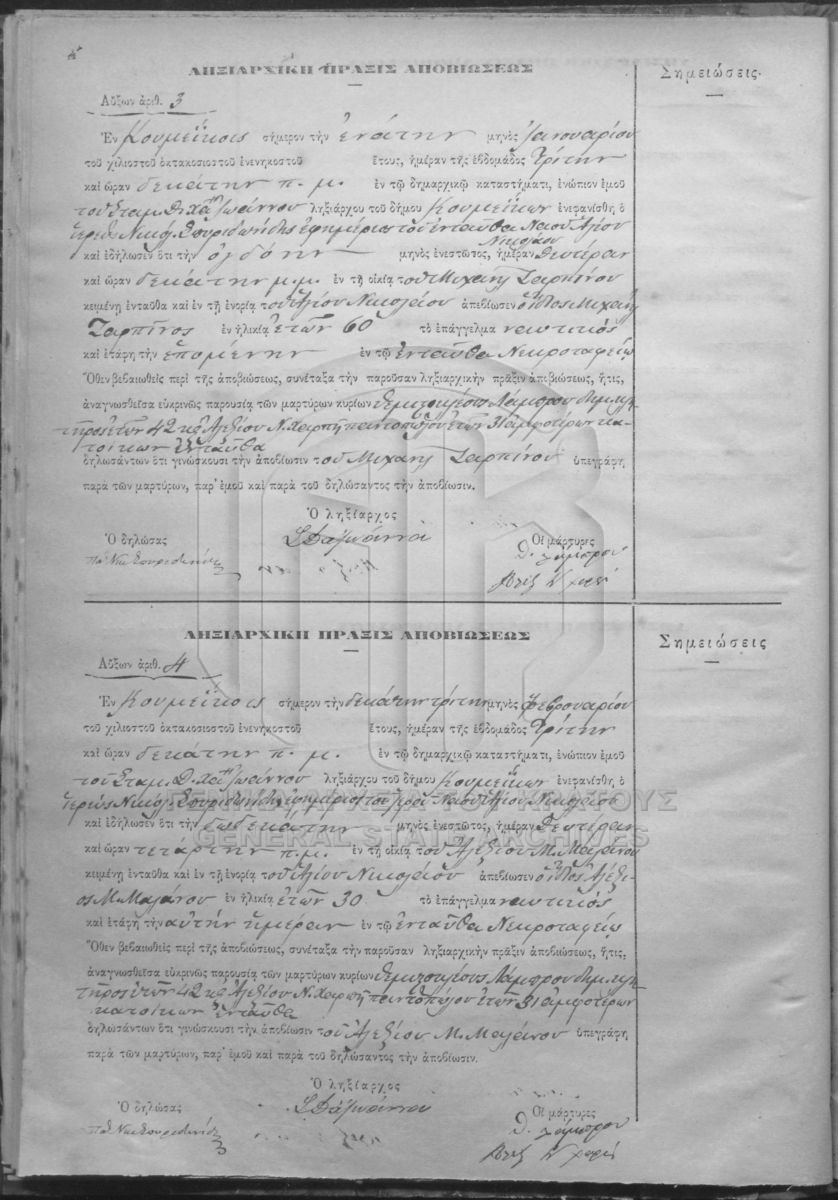 ΛΗΞΙΑΡΧΙΚΗ ΠΡΑΞΙΣ ΑΠΟΒΙΩΣΕΩΣ
Σημειώσεις
Αὔξων ἀριθ. 3
Ἐν Κουμεΐκοις σήμερον τὴν ἐνάτην μηνὸς Ἰανουαρίου
τοῦ χιλιοστοῦ ὀκτακοσιοστοῦ ἐνενηκοστοῦ ἔτους, ἡμέραν τῆς ἑβδομάδος Τρίτην
καὶ ὥραν δεκάτην π. μ. ἐν τῷ δημαρχικῷ καταστήματι, ἐνώπιον ἐμοῦ
τοῦ Σταμ. Δ. Χ΄΄Ἰωάννου ληξιάρχου τοῦ δήμου Κουμεΐκων ἐνεφανίσθη ὁ
ἱερεὺς Νικόλ. Σπυριδωνίδης ἐφημέριος τοῦ ἐνταῦθα Ναοῦ Ἁγίου
Νικολάου
καὶ ἐδήλωσεν ὅτι τὴν ὀγδόην μηνὸς ἐνεστῶτος, ἡμέραν Δευτέραν
καὶ ὥραν δεκάτην μ.μ. ἐν τῇ οἰκίᾳ τοῦ Μιχαὴλ Σαρπίνου
κειμένῃ ἐνταῦθα καὶ ἐν τῇ ἐνορίᾳ τοῦ Ἁγίου Νικολάου ἀπεβίωσεν ὁ ἴδιος Μιχαὴλ
Σαρπῖνος ἐν ἡλικίᾳ ἐτῶν 60 τὸ ἐπάγγελμα ναυτικός
καὶ ἐτάφη τὴν ἑπομένην ἐν τῷ ἐνταῦθα Νεκροταφείῳ
Ὅθεν βεβαιωθεὶς περὶ τῆς ἀποβιώσεως, συνέταξα τὴν παροῦσαν ληξιαρχικὴν πρᾶξιν ἀποβιώσεως, ἥτις,
ἀναγνωσθεῖσα εὐκρινῶς παρουσίᾳ τῶν μαρτύρων κυρίων Θεμιστοκλέους Λάμπρου δημ. κλη
τῆρος ἐτῶν 42 καὶ Ἀλεξίου Ν. Χαρπῆ παντοπώλου ἐτῶν 31 ἀμφοτέρων κα
τοίκων ἐνταῦθα
δηλωσάντων ὅτι γινώσκουσι τὴν ἀποβίωσιν τοῦ Μιχαὴλ Σαρπίνου ὑπεγράφη
παρὰ τῶν μαρτύρων, παρ' ἐμοῦ καὶ παρὰ τοῦ δηλώσαντος τὴν ἀποβίωσιν.
Ὁ ληξίαρχος
Ὁ δηλώσας
Οἱ μάρτυρες
Θ. Λάμπρου
ΛΗΞΙΑΡΧΙΚΗ ΠΡΑΞΙΣ ΑΠΟΒΙΩΣΕΩΣ
Σημειώσεις
Αὔξων ἀριθ. 4
Ἐν Κουμεΐκοις σήμερον τὴν δεκάτην τρίτην μηνὸς Φεβρουαρίου
τοῦ χιλιοστοῦ ὀκτακοσιοστοῦ ἐνενηκοστοῦ ἔτους, ἡμέραν τῆς ἑβδομάδος Τρίτην
καὶ ὥραν δεκάτην π. μ. ἐν τῷ δημαρχικῷ καταστήματι, ἐνώπιον ἐμοῦ
τοῦ Σταμ. Δ. Χ΄΄Ἰωάννου ληξιάρχου τοῦ δήμου Κουμεΐκων ἐνεφανίσθη ὁ
ἱερεὺς Νικόλ. Σπυριδωνίδης ἐφημέριος τοῦ ἱεροῦ Ναοῦ Ἁγίου Νικολάου
ΓΕΝΙΚΑ ΑΡΧΕΙΑ ΤΟΥ ΚΡΑΤΟΥΣ
καὶ ἐδήλωσεν ὅτι τὴν δωδεκάτην μηνὸς ἐνεστῶτος, ἡμέραν Δευτέραν
GENERAL STATE ARCHIVES
καὶ ὥραν τετάρτην π.μ. ἐν τῇ οἰκίᾳ τοῦ Ἀλεξίου Μ. Μαλάνου
κειμένῃ ἐνταῦθα καὶ ἐν τῇ ἐνορίᾳ τοῦ Ἁγίου Νικολάου ἀπεβίωσεν ὁ ἴδιος Ἀλέξι
ος Μ. Μαλάνου ἐν ἡλικίᾳ ἐτῶν 30 τὸ ἐπάγγελμα ναυτικός
καὶ ἐτάφη τὴν αὐτὴν ἡμέραν ἐν τῷ ἐνταῦθα Νεκροταφείῳ
Ὅθεν βεβαιωθεὶς περὶ τῆς ἀποβιώσεως, συνέταξα τὴν παροῦσαν ληξιαρχικὴν πρᾶξιν ἀποβιώσεως, ἥτις,
ἀναγνωσθεῖσα εὐκρινῶς παρουσίᾳ τῶν μαρτύρων κυρίων Θεμιστοκλέους Λάμπρου δημ. κλη
τῆρος ἐτῶν 42 καὶ Ἀλεξίου Ν. Χαρπῆ παντοπώλου ἐτῶν 31 ἀμφοτέρων
κατοίκων ἐνταῦθα
δηλωσάντων ὅτι γινώσκουσι τὴν ἀποβίωσιν τοῦ Ἀλεξίου Μ. Μαλάνου ὑπεγράφη
παρὰ τῶν μαρτύρων, παρ' ἐμοῦ καὶ παρὰ τοῦ δηλώσαντος τὴν ἀποβίωσιν.
Ὁ ληξίαρχος
Ὁ δηλώσας
Οἱ μάρτυρες
Θ. Λάμπρου